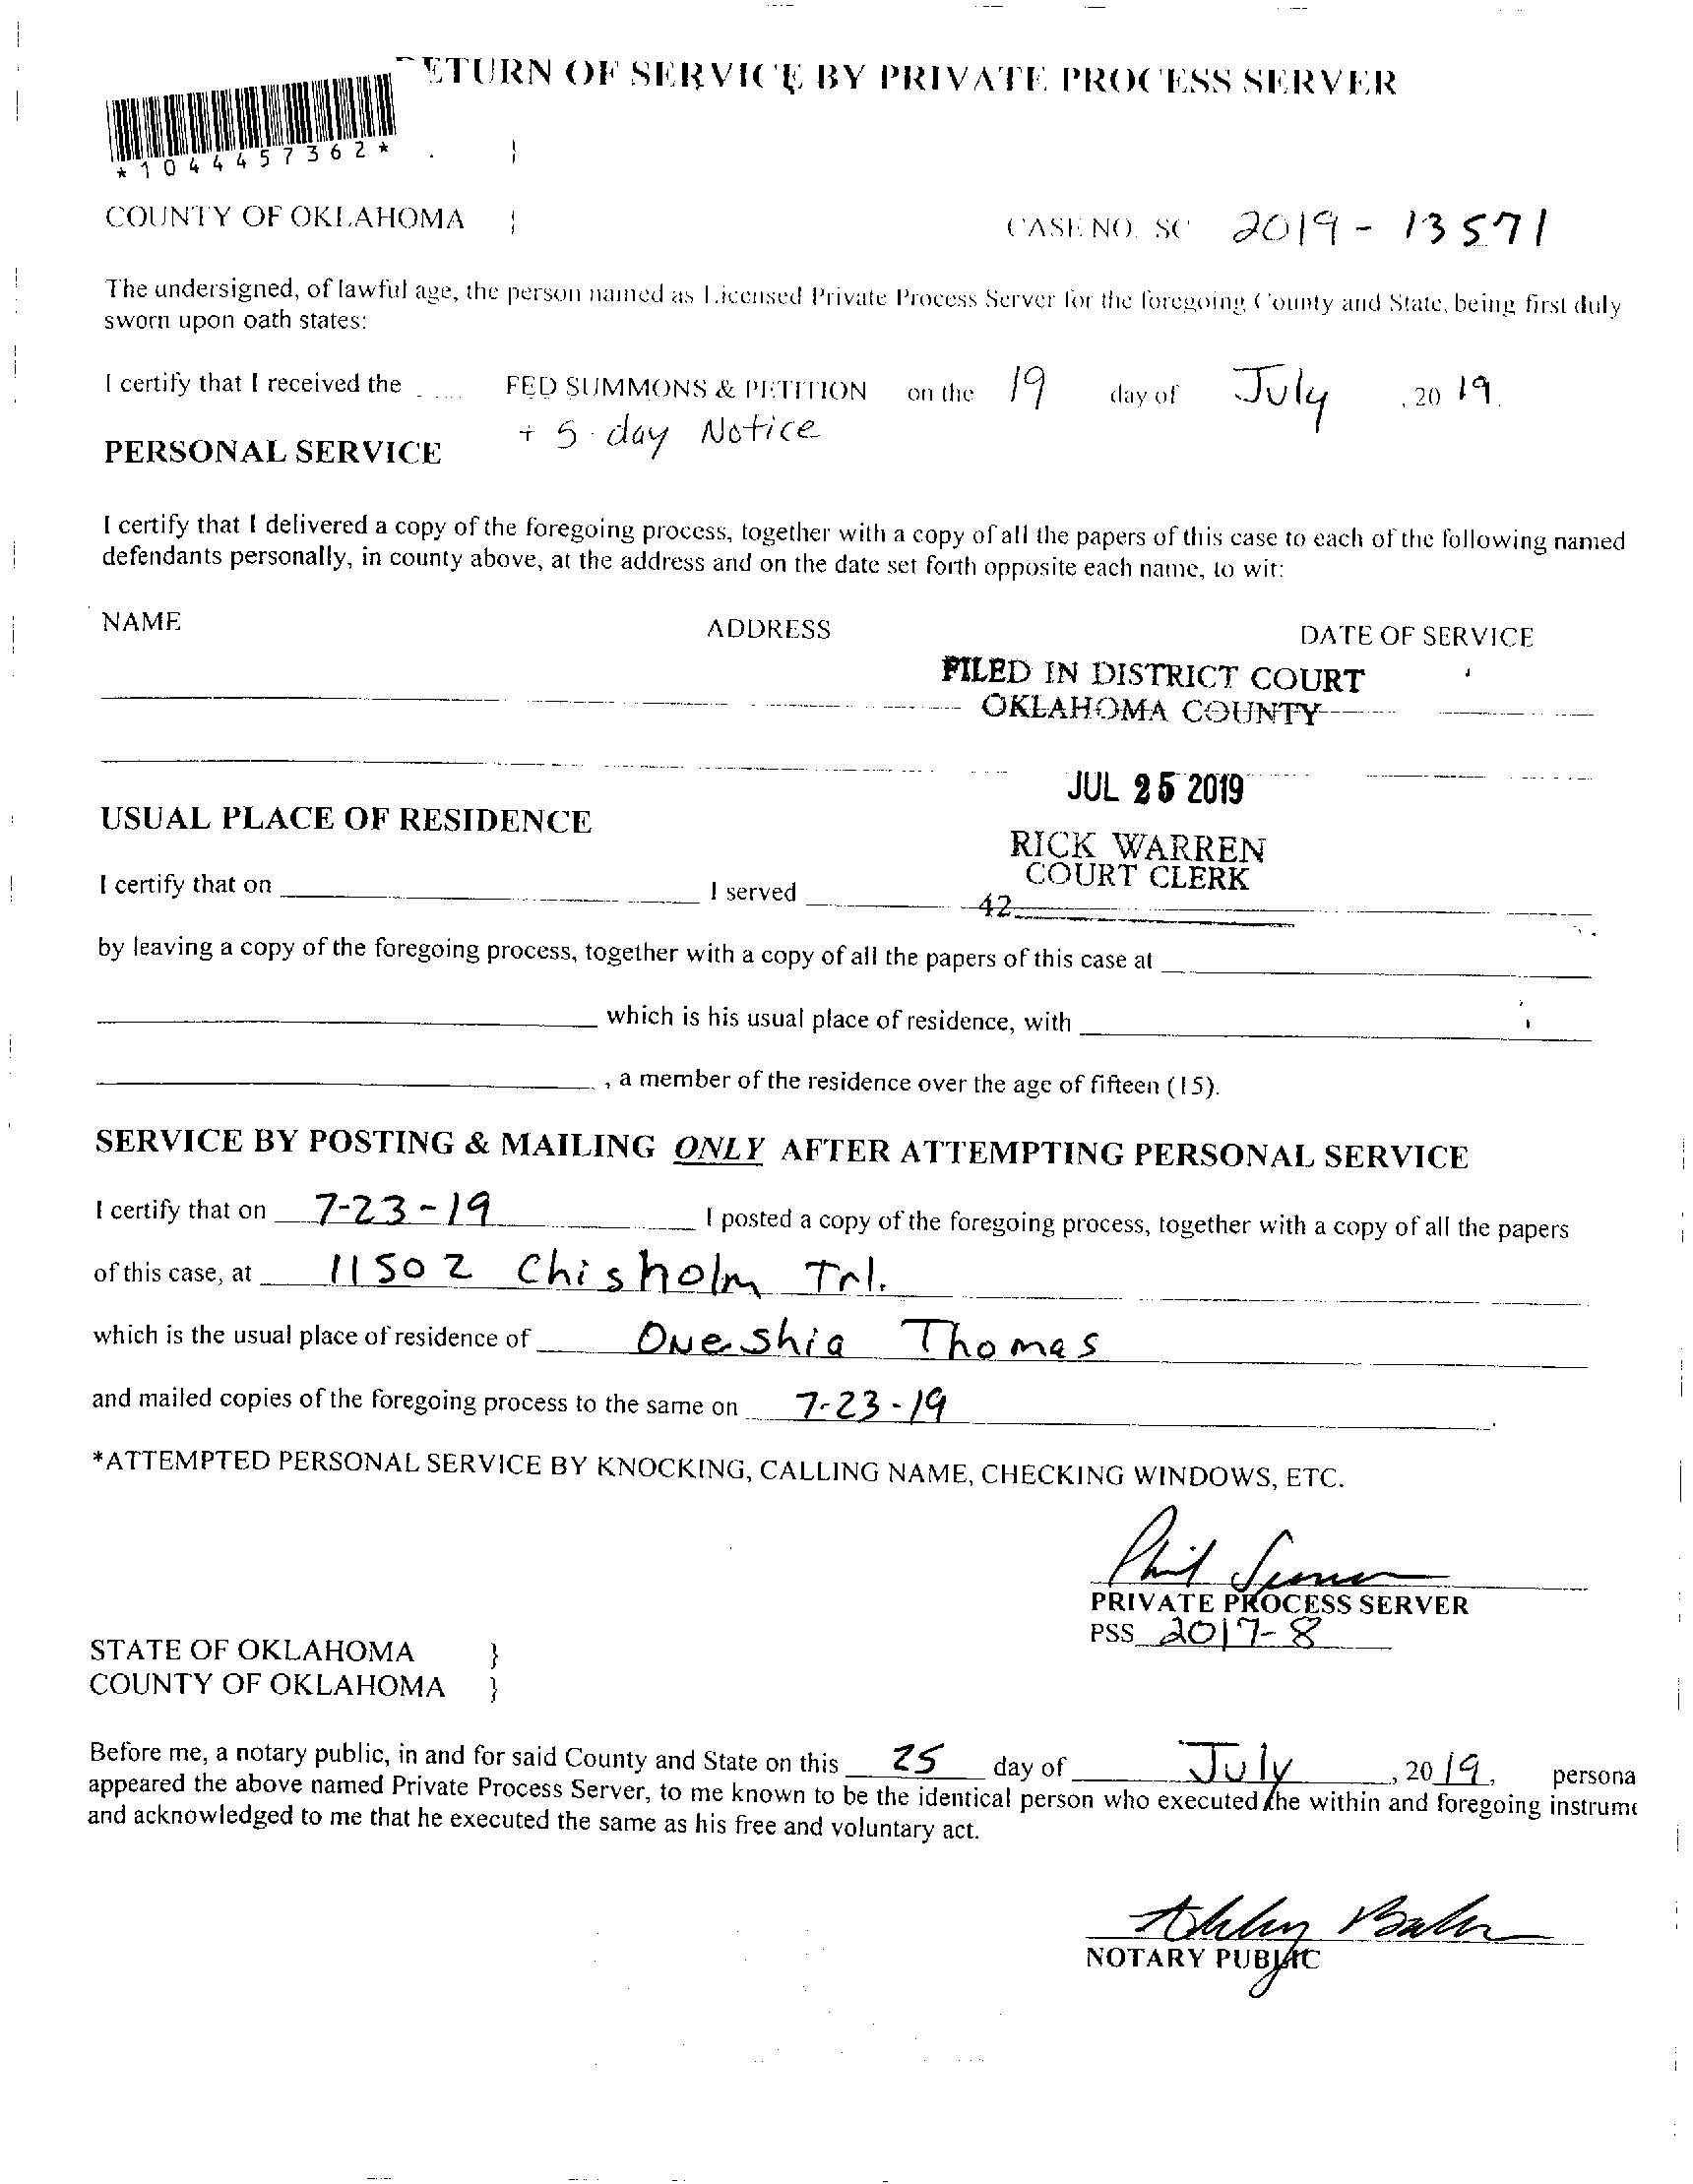 ETURN OF SERVICE BY PRIVATE PROCESS SERVER
*1044457362*
COUNTY OF OKLAHOMA } CASE NO. SC 2019-13571
The undersigned, of lawful age, the person named as Licensed Private Process Server for the foregoing County and State, being first duly
sworn upon oath states:
I certify that I received the FED SUMMONS & PETITION on the 19 day of July, 2019.
+ 5-day Notice
PERSONAL SERVICE
I certify that I delivered a copy of the foregoing process, together with a copy of all the papers of this case to each of the following named
defendants personally, in county above, at the address and on the date set forth opposite each name, to wit:
NAME ADDRESS DATE OF SERVICE
FILED IN DISTRICT COURT
OKLAHOMA COUNTY
JUL 25 2019
USUAL PLACE OF RESIDENCE
RICK WARREN
COURT CLERK
I certify that on I served
42
by leaving a copy of the foregoing process, together with a copy of all the papers of this case at
which is his usual place of residence, with
, a member of the residence over the age of fifteen (15).
SERVICE BY POSTING & MAILING ONLY AFTER ATTEMPTING PERSONAL SERVICE
I certify that on 7-23-19 I posted a copy of the foregoing process, together with a copy of all the papers
of this case, at 11502 Chisholm Trl.
which is the usual place of residence of Oneshia Thomas
and mailed copies of the foregoing process to the same on 7-23-19
*ATTEMPTED PERSONAL SERVICE BY KNOCKING, CALLING NAME, CHECKING WINDOWS, ETC.
Phil
PRIVATE PROCESS SERVER
PSS 2017-8
STATE OF OKLAHOMA }
COUNTY OF OKLAHOMA }
Before me, a notary public, in and for said County and State on this 25 day of July, 2019, persona
appeared the above named Private Process Server, to me known to be the identical person who executed the within and foregoing instrume
and acknowledged to me that he executed the same as his free and voluntary act.
NOTARY PUBLIC